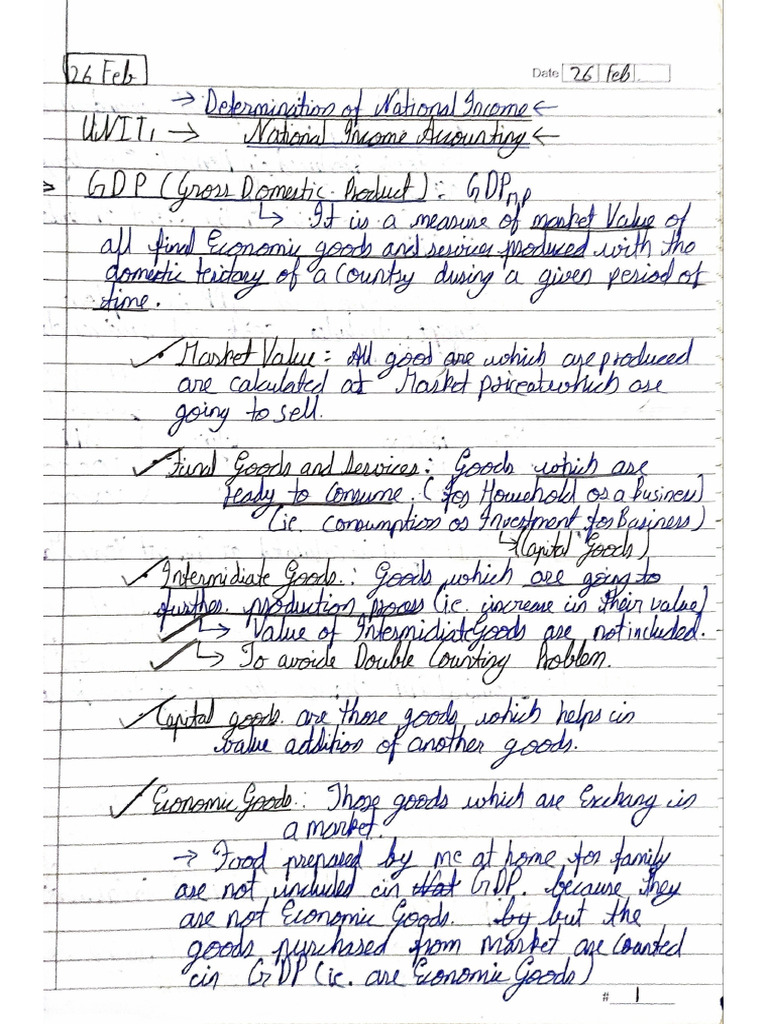 26 Feb
Date 26 Feb
→ Determination of National Income ←
UNIT 1 → National Income Accounting ←
GDP (Gross Domestic Product) : GDP MP
↳ It is a measure of market Value of
all final Economic goods and services produced with the
domestic teriotary of a Country during a given period of
time.
Market Value : All good are which are produced
are calculated at Market price at which are
going to sell.
Final Goods and Services : Goods which are
ready to Consume. (for Household or a Business)
(ie. Consumption or Investment for Business)
↳ (Capital Goods)
Intermidiate Goods. : Goods which are going to
further production process (i.e. increase in their value)
↳ Value of Intermidiate Goods are not included.
↳ To avoide Double Counting Problem.
Capital goods. are those goods which helps in
value addition of another goods.
Economic Goods. : Those goods which are Exchang in
a market.
→ Food prepared by me at home for family
are not included in Not GDP. because they
are not Economic Goods. by but the
goods purchased from market are counted
in GDP (ie. are Economic Goods)
# 1